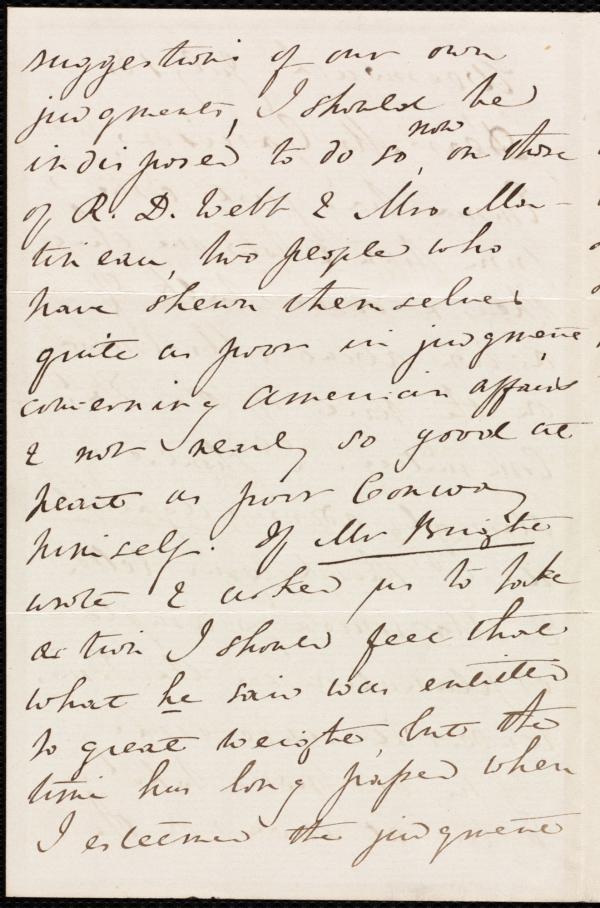 suggestions of our own
judgments, I should be
indisposed to do so, now on those
of R. D. Webb & Mrs Mar-
tineau, two people who
have shewn themselves
quite as poor in judgment,
concerning American affairs
& not nearly so good at
heart as poor Conway
himself. If Mr Bright
wrote & asked us to take
action I should feel that
what he said was entitled
to great weight, but the
time has long passed when
I esteemed the judgment